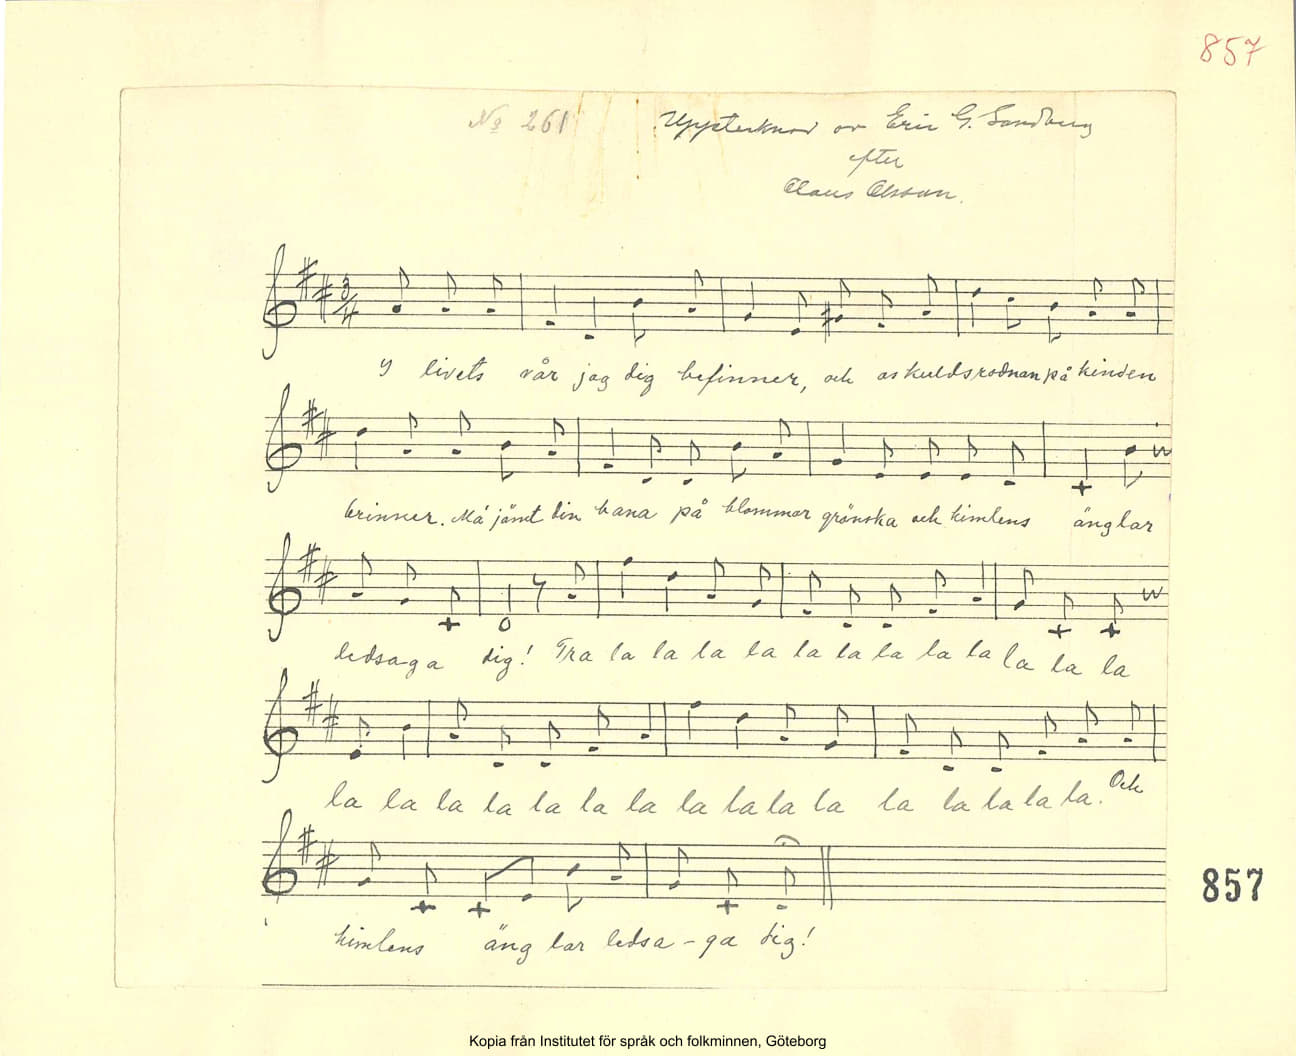 857
No 261
Upptecknad av Eric G. Sandberg
efter
Claus Olsson.
3/4
I livets vår jag dig befinner, och oskuldsrodnan på kinden
brinner. Må jämt din bana på blommor grönska och himlens änglar
ledsaga dig! Tra la la la la la la la la la la la la
la la la la la la la la la la la la la la la la. Och
himlens änglar ledsa-ga dig!
857
Kopia från Institutet för språk och folkminnen, Göteborg